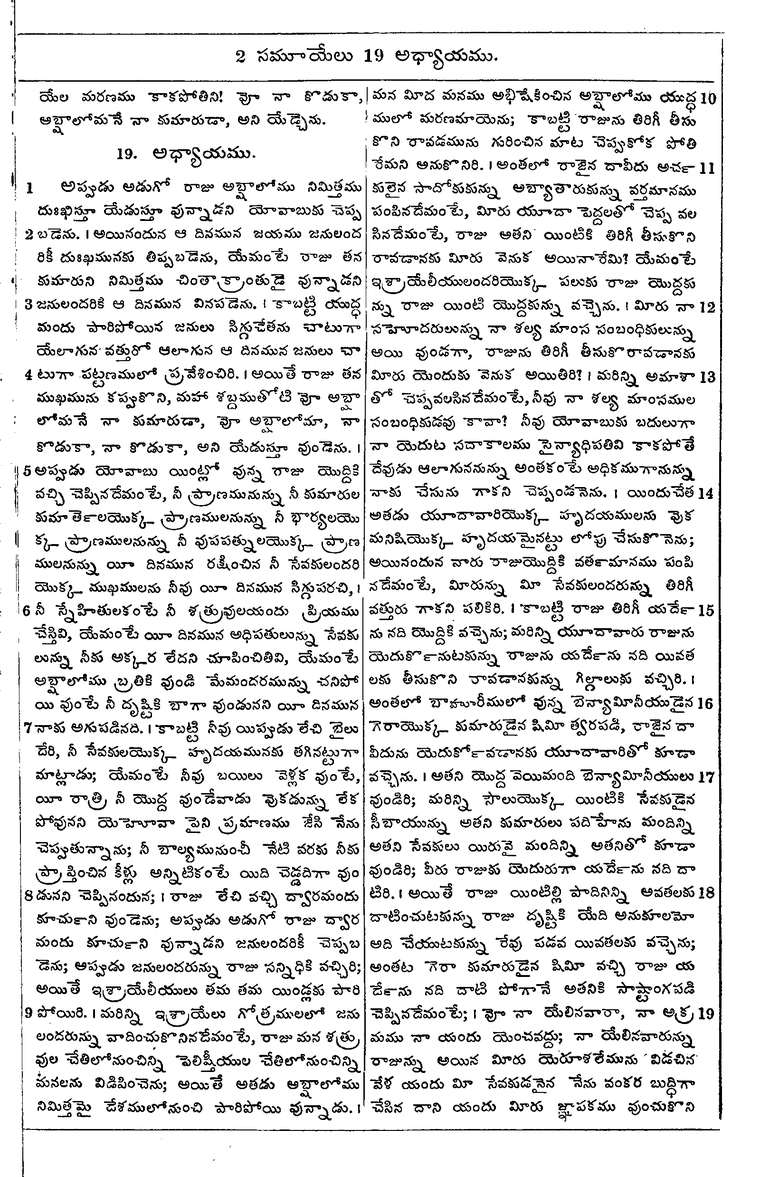 2 సమూయేలు 19 అధ్యాయము.
యేల మరణము కాకపోతిని! వో నా కొడుకా,
అబ్షాలోమనే నా కుమారుడా, అని యేడ్చెను.
19. అధ్యాయము.
1 అప్పుడు అడుగో రాజు అబ్షాలోము నిమిత్తము
దుఃఖిస్తూ యేడుస్తూ వున్నాడని యోవాబుకు చెప్ప
2 బడెను. । అయినందున ఆ దినమున జయము జనులంద
రికీ దుఃఖమునకు తిప్పబడెను, యేమంటే రాజు తన
కుమారుని నిమిత్తము చింతాక్రాంతుడై వున్నాడని
3 జనులందరికి ఆ దినమున వినపడెను. । కాబట్టి యుద్ధ
మందు పారిపోయిన జనులు సిగ్గుచేతను చాటుగా
యేలాగున వత్తురో ఆలాగున ఆ దినమున జనులు చా
4 టుగా పట్టణములో ప్రవేశించిరి. । అయితే రాజు తన
ముఖమును కప్పుకొని, మహా శబ్దముతోటి వో అబ్షా
లోమనే నా కుమారుడా, వో అబ్షాలోమా, నా
కొడుకా, నా కొడుకా, అని యేడుస్తూ వుండెను. ।
5 అప్పుడు యోవాబు యింట్లో వున్న రాజు యొద్దికి
వచ్చి చెప్పినదేమంటే, నీ ప్రాణమునున్ను నీ కుమారుల
కుమార్తెలయొక్క ప్రాణములనున్ను నీ భార్యలయొ
క్క ప్రాణములనున్ను నీ వుపపత్నులయొక్క ప్రాణ
ములనున్ను యీ దినమున రక్షించిన నీ సేవకులందరి
యొక్క ముఖములను నీవు యీ దినమున సిగ్గుపరచి, ।
6 నీ స్నేహితులకంటే నీ శత్రువులయందు ప్రియము
చేస్తివి, యేమంటే యీ దినమున అధిపతులున్ను సేవకు
లున్ను నీకు అక్కర లేదని చూపించితివి, యేమంటే
అబ్షాలోము బ్రతికి వుండి మేమందరమున్ను చనిపో
యి వుంటే నీ దృష్టికి బాగా వుండునని యీ దినమున
7 నాకు అగుపడినది. । కాబట్టి నీవు యిప్పుడు లేచి బైలు
దేరి, నీ సేవకులయొక్క హృదయమునకు తగినట్టుగా
మాట్లాడు; యేమంటే నీవు బయిలు వెళ్లక వుంటే,
యీ రాత్రి నీ యొద్ద వుండేవాడు వొకడున్ను లేక
పోవునని యెహోవా పైని ప్రమాణము జేసి నేను
చెప్పుతున్నాను; నీ బాల్యమునుంచీ నేటి వరకు నీకు
ప్రాప్తించిన కీళ్లు అన్నిటికంటే యిది చెడ్డదిగా వుం
8 డునని చెప్పినందున; । రాజు లేచి వచ్చి ద్వారమందు
కూర్చుని వుండెను; అప్పుడు అడుగో రాజు ద్వార
మందు కూర్చుని వున్నాడని జనులందరికీ చెప్పబ
డెను; అప్పుడు జనులందరున్ను రాజు సన్నిధికి వచ్చిరి;
అయితే ఇశ్రాయేలీయులు తమ తమ యిండ్లకు పారి
9 పోయిరి. । మరిన్ని ఇశ్రాయేలు గోత్రములలో జను
లందరున్ను వాదించుకొనినదేమంటే, రాజు మన శత్రు
వుల చేతిలోనుంచిన్ని పెలిష్తీయుల చేతిలోనుంచిన్ని
మనలను విడిపించెను; అయితే అతడు అబ్షాలోము
నిమిత్తమై దేశములోనుంచి పారిపోయి వున్నాడు. ।
మన మీద మనము అభిషేకించిన అబ్షాలోము యుద్ధ 10
ములో మరణమాయెను; కాబట్టి రాజును తిరిగీ తీసు
కొని రావడమును గురించిన మాట చెప్పుకోక పోతి
రేమని అనుకొనిరి. । అంతలో రాజైన దావీదు ఆచర్య 11
కులైన సాదోకుకున్ను అబ్యాతారుకున్ను వర్తమానము
పంపినదేమంటే, మీరు యూదా పెద్దలతో చెప్ప వల
సినదేమంటే, రాజు అతని యింటికి తిరిగీ తీసుకొని
రావడానకు మీరు వెనుక అయినారేమి? యేమంటే
ఇశ్రాయేలీయులందరియొక్క పలుకు రాజు యొద్దకు
న్ను రాజు యింటి యొద్దకున్ను వచ్చెను. । మీరు నా 12
సహోదరులున్ను నా శల్య మాంస సంబంధికులున్ను
అయి వుండగా, రాజును తిరిగీ తీసుకొరావడానకు
మీరు యెందుకు వెనుక అయితిరి? । మరిన్ని అమాశా 13
తో చెప్పవలసినదేమంటే, నీవు నా శల్య మాంసముల
సంబంధికుడవు కావా? నీవు యోవాబుకు బదులుగా
నా యెదుట సదాకాలము సైన్యాధిపతివి కాకపోతే
దేవుడు ఆలాగుననున్ను అంతకంటే అధికముగానున్ను
నాకు చేసును గాకని చెప్పండనెను. । యిందుచేత 14
అతడు యూదావారియొక్క హృదయములను వొక
మనిషియొక్క హృదయమైనట్టు లోపు చేసుకొనెను;
అయినందున వారు రాజుయొద్దికి వర్తమానము పంపి
నదేమంటే, మీరున్ను మీ సేవకులందరున్ను తిరిగీ
వత్తురు గాకని పలికిరి. । కాబట్టి రాజు తిరిగీ యర్దె 15
ను నది యొద్దికి వచ్చెను; మరిన్ని యూదావారు రాజును
యెదుర్కొనుటకున్ను రాజును యర్దెను నది యివత
లకు తీసుకొని రావడానకున్ను గిల్గాలుకు వచ్చిరి. ।
అంతలో బాహురీములో వున్న బెన్యామీనీయుడైన 16
గెరాయొక్క కుమారుడైన షిమీ త్వరపడి, రాజైన దా
వీదును యెదుర్కోవడానకు యూదావారితో కూడా
వచ్చెను. । అతని యొద్ద వెయిమంది బెన్యామీనీయులు 17
వుండిరి; మరిన్ని సౌలుయొక్క యింటికి సేవకుడైన
సీబాయున్ను అతని కుమారులు పదిహేను మందిన్ని
అతని సేవకులు యిరువై మందిన్ని అతనితో కూడా
వుండిరి; వీరు రాజుకు యెదురుగా యర్దెను నది దా
టిరి. । అయితే రాజు యింటిల్లి పాదినిన్ని అవతలకు 18
దాటించుటకున్ను రాజు దృష్టికి యేది అనుకూలమో
అది చేయుటకున్ను రేవు పడవ యివతలకు వచ్చెను;
అంతట గెరా కుమారుడైన షిమీ వచ్చి రాజు య
ర్దెను నది దాటి పోగానే అతనికి సాష్టాంగపడి
చెప్పినదేమంటే; । వో నా యేలినవారా, నా అక్ర 19
మము నా యందు యెంచవద్దు; నా యేలినవారున్ను
రాజున్ను అయిన మీరు యెరూశలేమును విడచిన
వేళ యందు మీ సేవకుడనైన నేను వంకర బుద్ధిగా
చేసిన దాని యందు మీరు జ్ఞాపకము వుంచుకొని